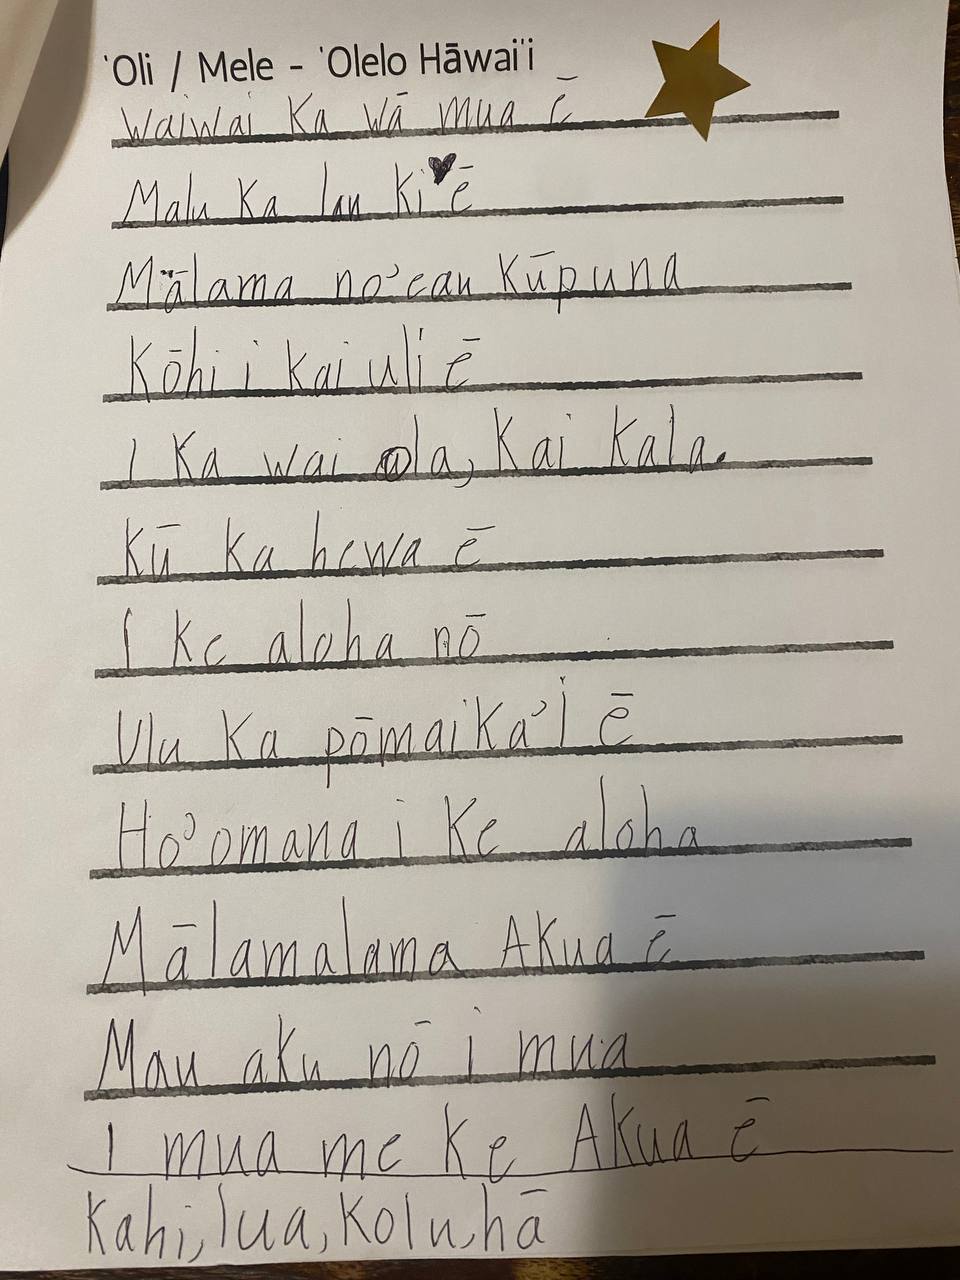 'Oli / Mele - 'Olelo Hāwai'i
Waiwai Ka wā mua ē
Malu Ka lau Ki ē
Mālama no'eau Kūpuna
Kōhi i Kai uli ē
I Ka wai ola, Kai Kala.
Kū Ka hewa ē
I Ke aloha nō
Ulu Ka pōmaiKa'i ē
Ho'omana i Ke aloha
Mālamalama AKua ē
Mau aKu nō i mua
I mua me Ke AKua ē
Kahi, lua, Kolu, hā